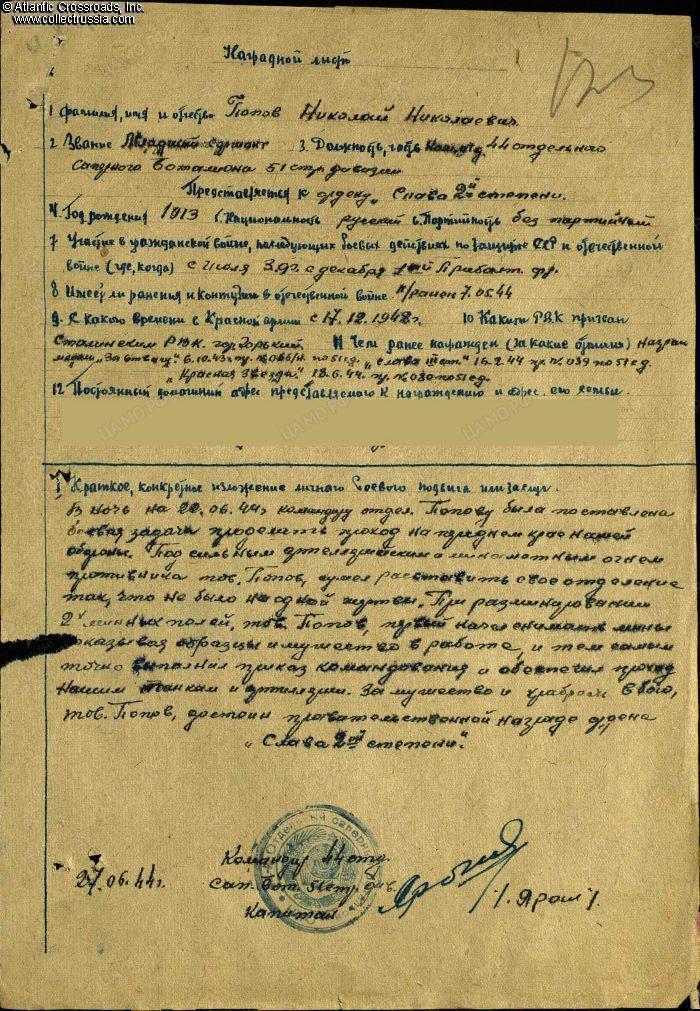 © Atlantic Crossroads, Inc.
www.collectrussia.com
Наградной лист
1 Фамилия, имя и отчество Попов Николай Николаевич
2 Звание Младший сержант 3. Должность, часть 44 отдельного
саперного баталиона 51 стр. дивизии
Представляется к ордену „Слава 2й степени.
4. Год рождения 1913 5. Национальность русский 6. Партийность без партийный
7 Участие в гражданской войне, последующих боевых действиях по защите СССР и отечественной
войне (где, когда) с декабря Прибалт. фр.
8 Имеет ли ранения и контузии в отечественной войне ранен 7.05.44
9. С какого времени в Красной армии с 17.12.1942г. 10 Каким РВК призван
Сталинским РВК. гор. Горький 11 Чем ранее награжден (за какие отличия)
медаль „За отвагу". 6.10.43г. пр. № по 51 с.д. „Слава 3 ст." 16.2.44 пр. № 039 по 51 с.д.
„Красная Звезда". 18.6.44. пр. № 030 по 51 с.д.
12 Постоянный домашний адрес представляемого к награждению и адрес его семьи.
1 Краткое, конкретное изложение личного боевого подвига или заслуг.
В ночь на 22.06.44г командиру отдел. Попову была поставлена
боевая задача проделать проход на переднем крае нашей
обороны. Под сильным артелерийским и минаметным огнем
противника тов. Попов, сумел расставить свое отделение
так, что не было не одной жертвы. При разминировании
2х минных полей, тов. Попов, первый начел снимать мины
показывая образцы и мужество в работе, и тем самым
точно выполнил приказ командования и обеспечил проход
нашим танкам и артилерии. За мужество и храбрость в бою,
тов. Попов, достоин правательственной награде ордена
„Слава 2ой степени".
Командир 44 отд.
27.06.44г. сап. бат. 51 стр. див.
Капитан /. Ярош /.